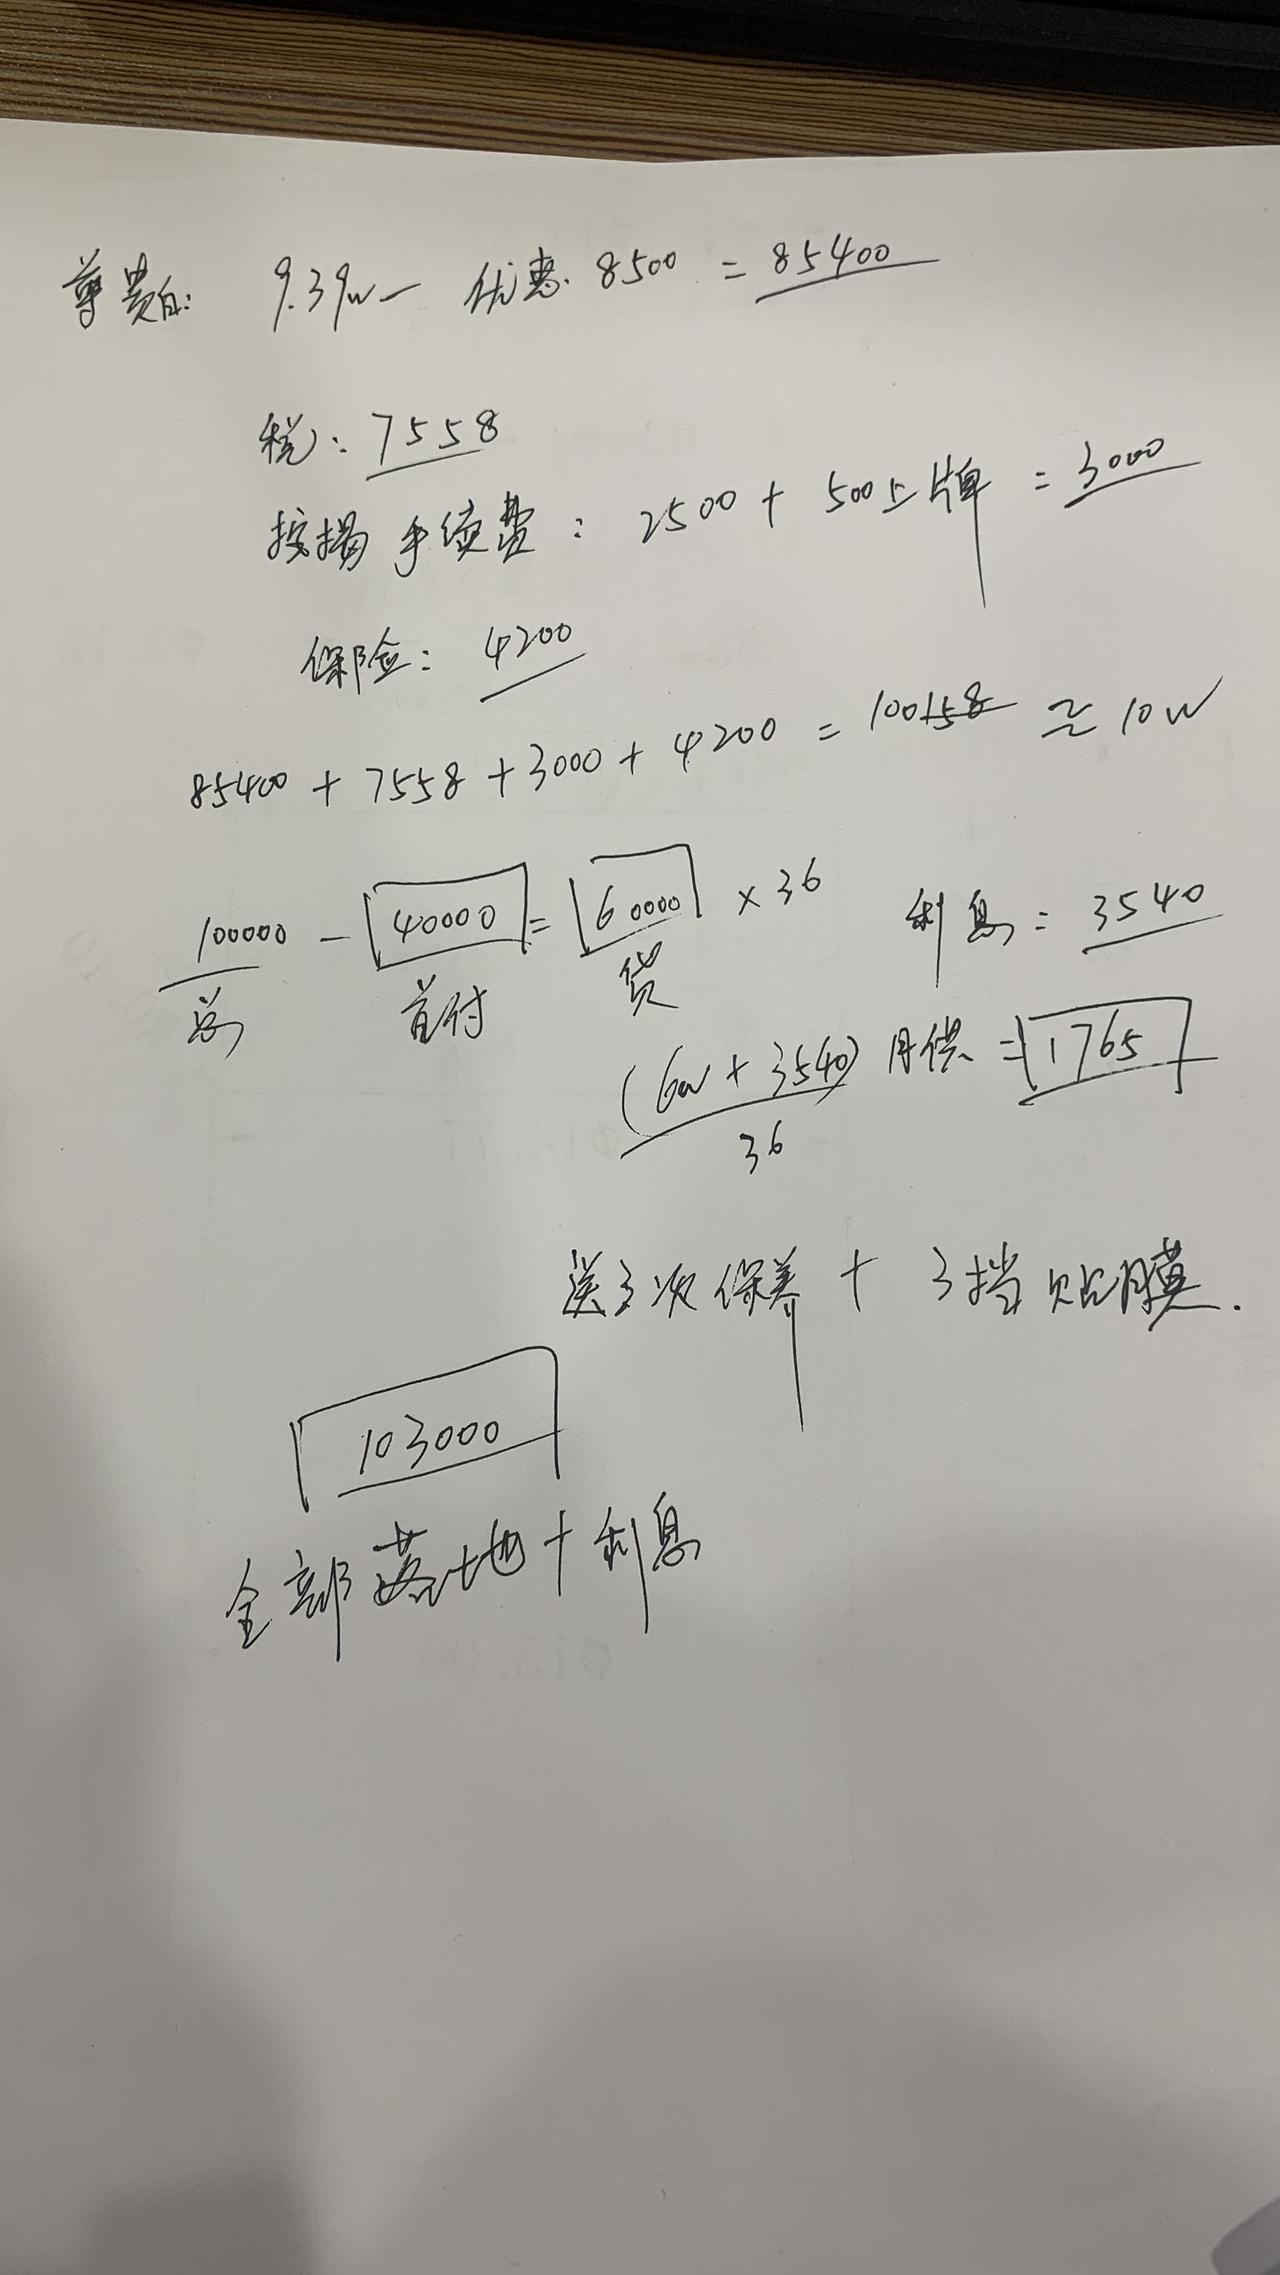 尊贵白: 9.39w - 优惠. 8500 = 85400
税: 7558
按揭手续费: 2500 + 500上牌 = 3000
保险: 4200
85400 + 7558 + 3000 + 4200 = 100158 ≈ 10w
100000 - 40000 = 60000 × 36 利息 = 3540
总 首付 贷
(6w + 3540) 月供 = 1765
36
送3次保养 + 3挡贴膜.
103000
全部落地 + 利息